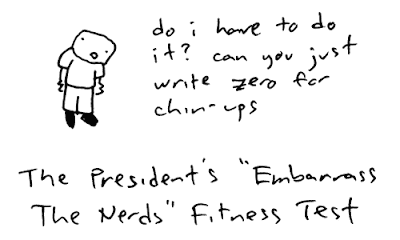 do i have to do
it? can you just
write zero for
chin-ups
The President's "Embarrass
The Nerds" Fitness Test